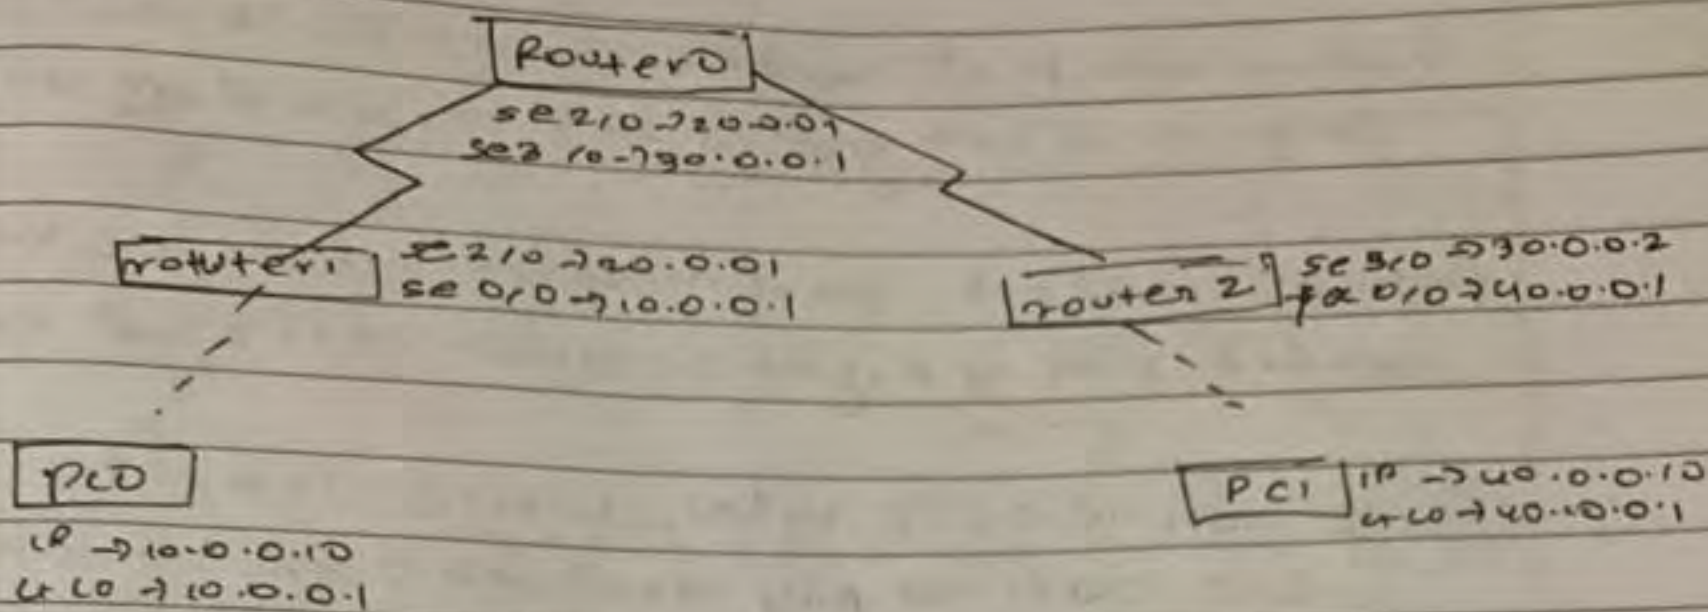 Router0
se2/0→20.0.01
se3/0→30.0.0.1
router1
se2/0→20.0.01
se0/0→10.0.0.1
router2
se3/0→30.0.0.2
fa0/0→40.0.0.1
PC0
IP→10.0.0.10
→10.0.0.1
PC1
IP→40.0.0.10
→40.0.0.1